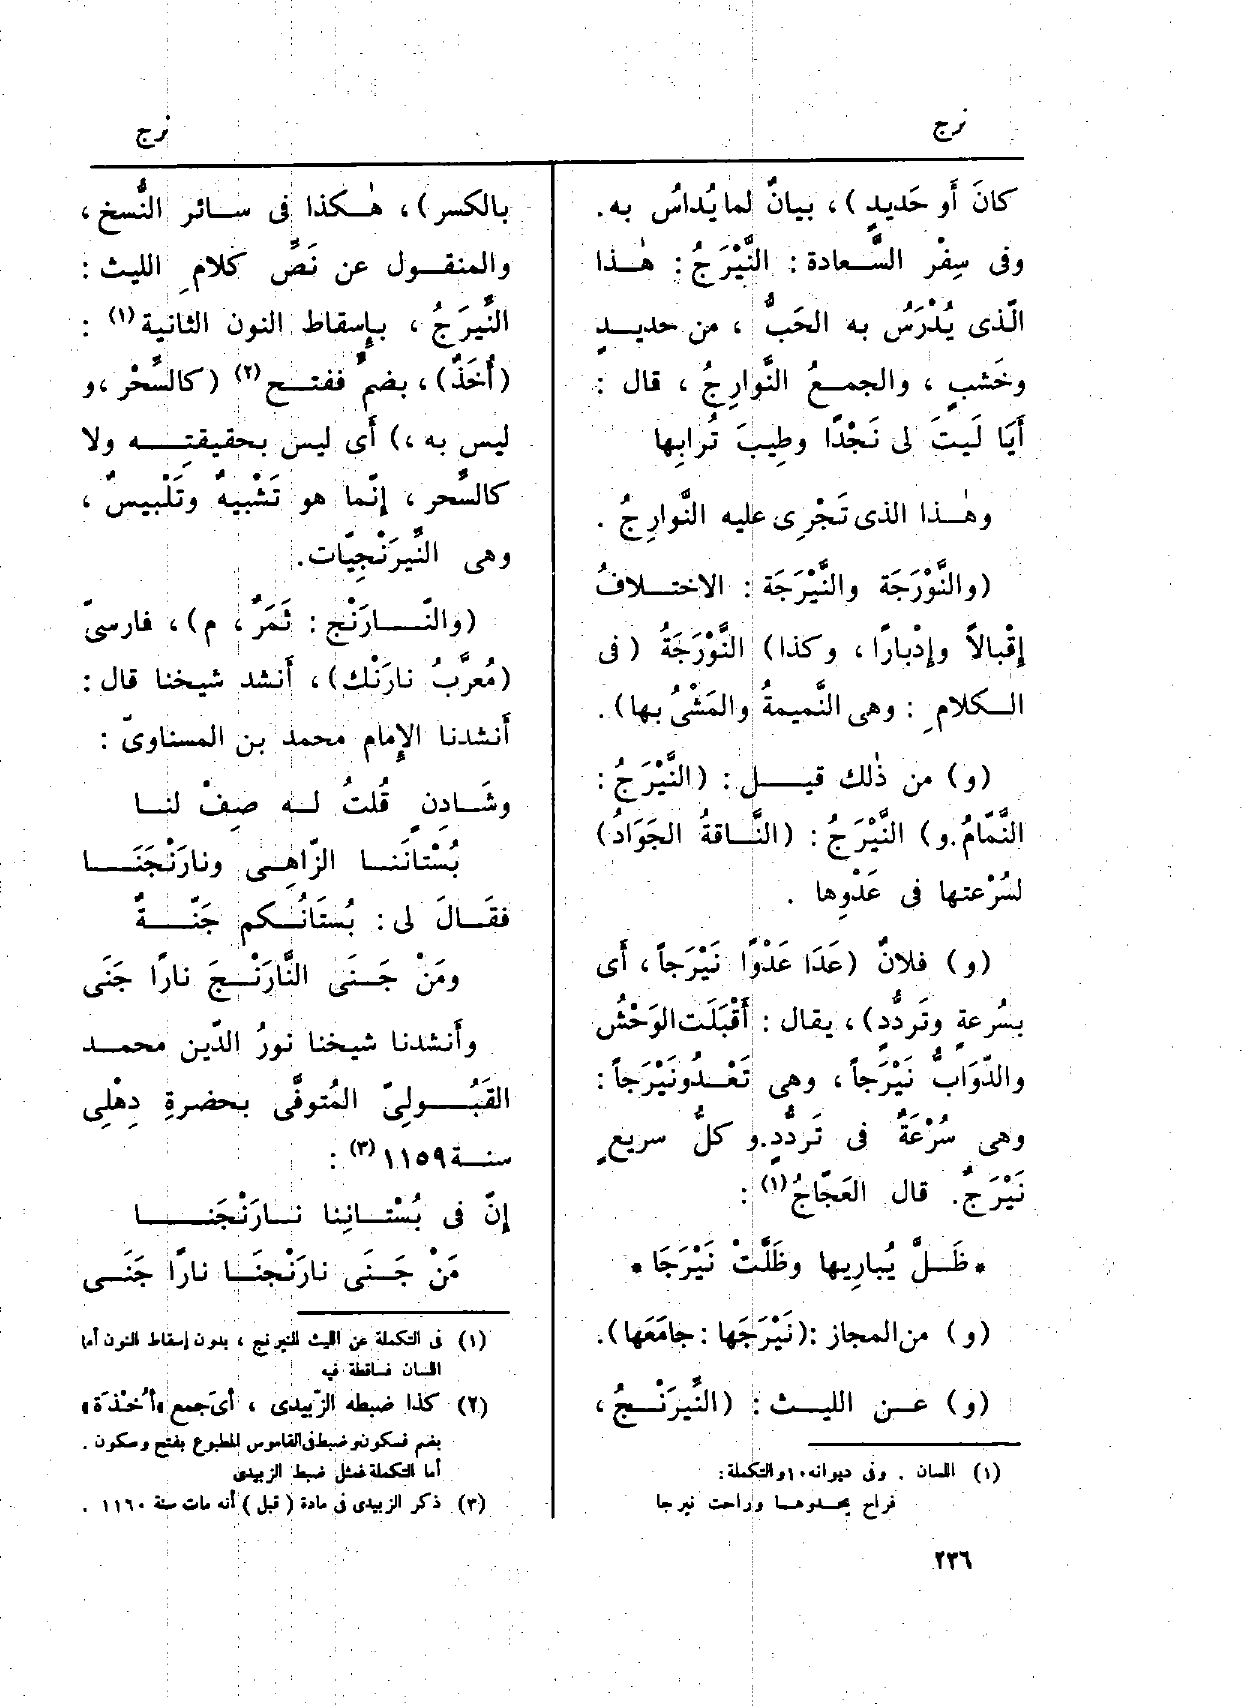 نرج
نرج
كانَ أَو حَديدٍ)، بيانٌ لما يُداسُ به.
وفى سِفْر السَّعادة : النَّيْرَجُ : هٰـذا
الّذى يُدْرَسُ به الحَبُّ ، من حديـدٍ
وخَشبٍ ، والجمعُ النَّوارِجُ ، قال :
أَيَا لَيتَ لى نَجْدًا وطِيبَ تُرابِها
وهٰـذا الذى تَجْرِى عليه النَّوارِجُ .
(والنَّوْرَجَة والنَّيْرَجَة : الاختـلافُ
إِقْبالاً وإِدْبارًا، وكذا) النَّوْرَجَةُ (فى
الـكلامِ : وهى النَّميمةُ والمَشْىُ بها) .
(و) من ذٰلك قيـل : (النَّيْرَجُ :
النَّمّامُ.و) النَّيْرَجُ : (النَّـاقةُ الجَوَادُ)
لسُرْعتها فى عَدْوِها .
(و) فلانٌ (عَدَا عَدْوًا نَيْرَجاً، أَى
بسُرعةٍ وتَردُّدٍ)، يقال : أَقْبَلَت الوَحْشُ
والدَّوَابُّ نَيْرَجاً، وهى تَعْـدُو نَيْرَجاً :
وهى سُرْعَةٌ فى تَردُّدٍ. و كلُّ سريعٍ
نَيْرَجٌ. قال العَجّاجُ(١) :
* ظَـلَّ يُبارِيها وظَلَّتْ نَيْرَجَا *
(و) من المجاز :(نَيْرَجَها : جامَعَها).
(و) عـن الليـث : (النَّيرَنْـجُ ،
(١) اللسان . وفى ديوانه ١٠ والتكملة :
فراح يحدوهـا وراحت نيرجا
بالكسر)، هٰـكذا فى سـائر النُّسخ ،
والمنقـول عن نَصِّ كلامِ الليث :
النَّيرَجُ ، بإِسقاط النون الثانية(١) :
(أُخَذٌ)، بضمٍّ ففتـح(٢) (كالسِّحْر ،و
ليس به ،) أَى ليس بحقيقتِـه ولا
كالسِّحر ، إِنّما هو تَشْبيهٌ وتَلْبيسٌ ،
وهى النِّيرَنْجِيّات.
(والنّـارَنْج : ثَمَرٌ ، م)، فارسىّ
(مُعرَّبُ نارَنْك)، أَنشد شيخنا قال :
أَنشدنا الإِمام محمد بن المسناوىّ :
وشَـادِنٍ قُلتُ لـه صِفْ لنـا
بُسْتانَنـا الزّاهِـى ونارَنْجَنَـا
فقَـالَ لى : بُستَانُـكم جَنّـةٌ
ومَنْ جَـنَى النَّارَنْـجَ نارًا جَنَى
وأَنشدنا شيخنا نورُ الدّين محمـد
القَبُـولىّ المُتوفَّى بحضرةِ دِهْلِى
سنـة ١١٥٩(٣) :
إِنّ فى بُسْتـانِنا نـارَنْجَنـا
مَنْ جَـنَى نارَنْجنَـا نارًا جَنَـى
(١) فى التكملة عن الليث النيرنج ، بدون إسقاط النون أما
اللسان فساقطة فيه
(٢) كذا ضبطه الزّبيدى ، أى جمع «أُخْذَة»
بضم فسكون وضبط فى القاموس المطبوع بفتح وسكون .
أما التكملة فمثل ضبط الزبيدى
(٣) ذكر الزبيدى فى مادة ( قبل ) أنه مات سنة ١١٦٠ .
٢٣٦